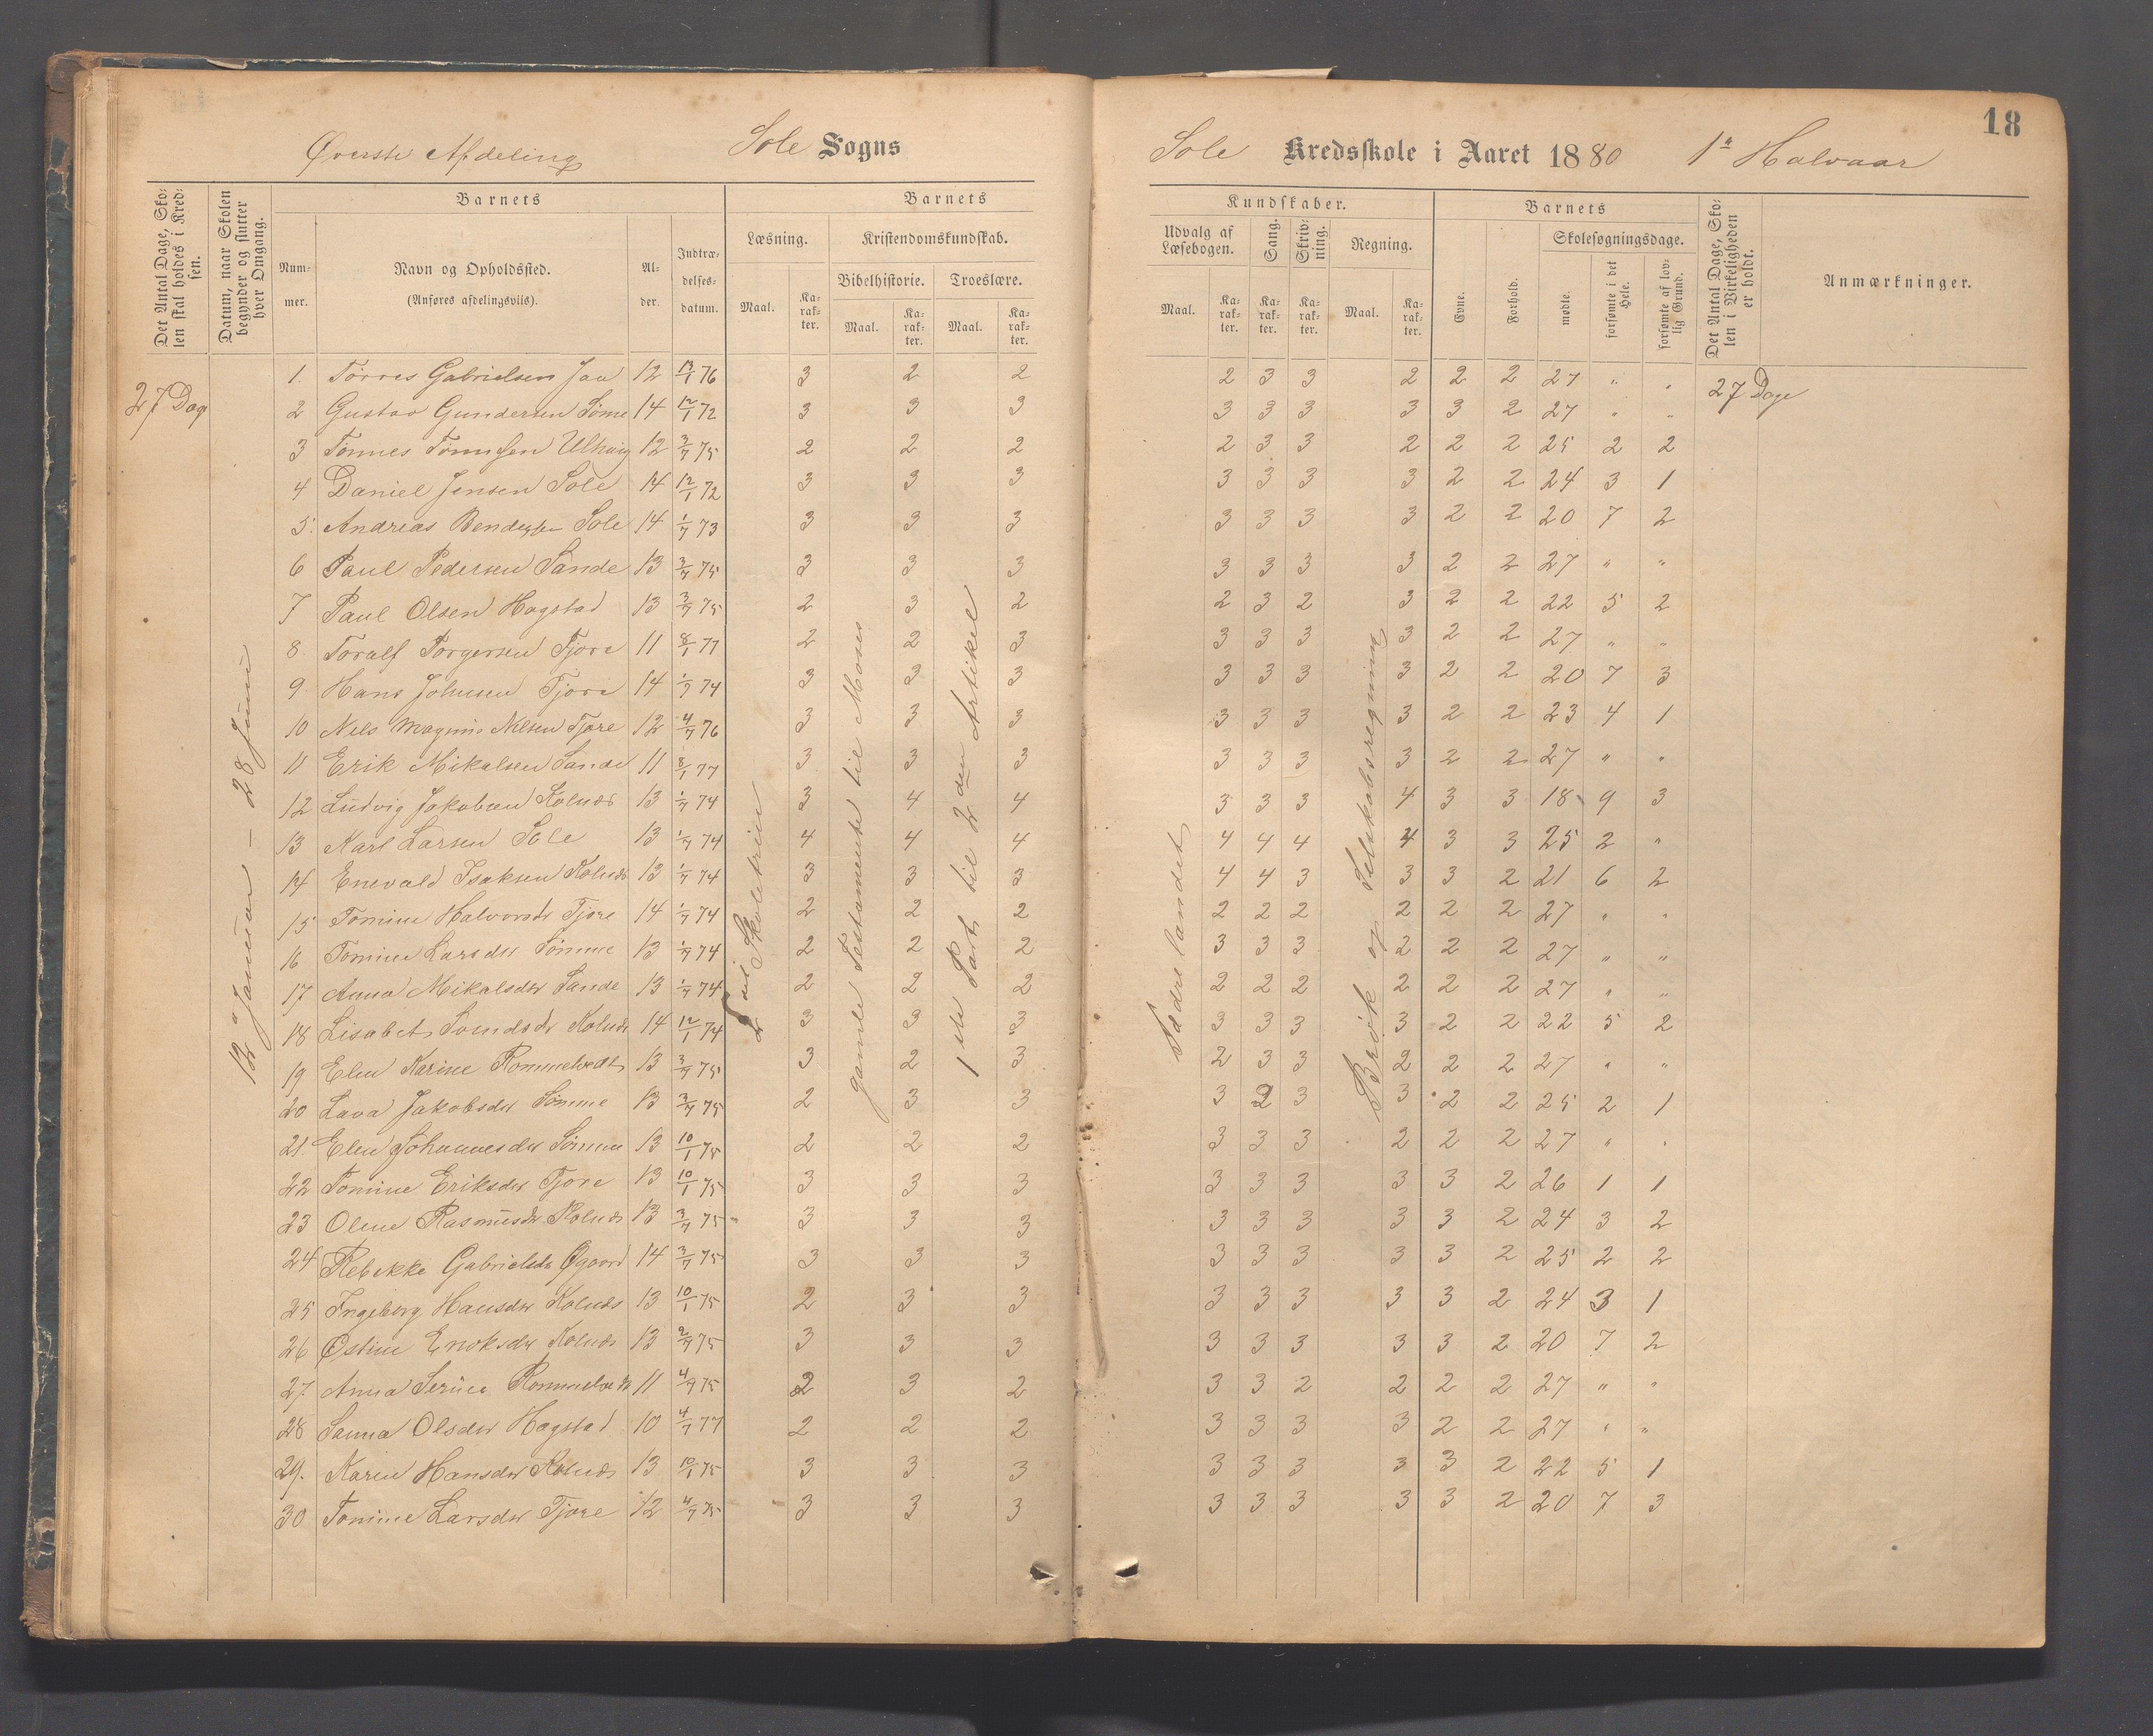 18
Øverste Afdeling Sole Sogns
Sole Kredsskole i Aaret 1880 1ste Halvaar
Det Antal Dage, Skolen skal holdes i Kredsen.
Datum, naar Skolen begynder og slutter hver Omgang.
Barnets
Nummer.
Navn og Opholdssted.
(Anføres afdelingsviis).
Alder.
Indtrædelsesdatum.
Barnets Kundskaber.
Læsning.
Maal. Karakter.
Kristendomskundskab.
Bibelhistorie. Troeslære.
Maal. Karakter. Maal. Karakter.
Udvalg af Læsebogen.
Maal. Karakter.
Sang. Karakter.
Skrivning. Karakter.
Regning.
Maal. Karakter.
Barnets
Evne. Forhold.
Skolesøgningsdage.
mødte. forsømte i det Hele. forsømte af lovlig Grund.
Det Antal Dage, Skolen i Virkeligheden er holdt.
Anmærkninger.
27 Dage
12 Januar – 28 Juni
Skoletrin
gamle Testamente til Moses
1ste Part til 2den Artikel
Fædrelandet
Brøk og Selskabsregning
27 Dage
1. Tørres Gabrielsen Jaa 12 13/1 76 3 2 2 2 3 3 2 2 2 27 " "
2 Gustav Gundersen Sømme 14 12/1 72 3 3 3 3 3 3 3 3 2 27 " "
3 Tønnes Tønnesen Uthaug 12 3/7 75 2 2 2 2 3 3 2 2 2 25 2 2
4 Daniel Jensen Sole 14 12/1 72 3 3 3 3 3 3 3 2 2 24 3 1
5. Andreas Sole 14 1/7 73 3 3 3 3 3 3 3 2 2 20 7 2
6 Paul Pedersen Sande 13 3/7 75 3 3 3 3 3 3 3 2 2 27 " "
7 Paul Olsen Hogstad 13 3/7 75 2 3 2 2 3 2 3 2 2 22 5 2
8 Toralf Torgersen Tjore 11 8/1 77 2 2 3 3 3 3 3 2 2 27 " "
9 Hans Johnsen Tjore 14 1/7 74 3 3 3 3 3 3 3 2 2 20 7 3
10 Nils Magnus Nilsen Tjore 12 4/7 76 3 3 3 3 3 3 3 2 2 23 4 1
11 Erik Mikalsen Sande 11 8/1 77 3 3 3 3 3 3 3 2 2 27 " "
12 Ludvig Jakobsen Kolnæs 13 1/7 74 3 4 4 3 3 3 4 3 3 18 9 3
13 Karl Larsen Sole 13 1/7 74 4 4 4 4 4 4 4 3 3 25 2 "
14 Enevald Isaksen Kolnæs 13 1/7 74 3 3 3 4 4 3 3 3 2 21 6 2
15 Tomine Halvorsdr Tjore 14 1/7 74 2 2 2 2 2 2 2 2 2 27 " "
16 Tomine Larsdtr Sømme 13 1/7 74 2 2 2 3 3 3 2 2 2 27 " "
17 Anna Mikalsdtr Sande 13 1/7 74 2 2 2 2 2 2 2 2 2 27 " "
18 Lisabet Svendsdr Kolnæs 14 12/1 74 3 3 3 3 3 3 3 2 2 22 5 2
19 Elen Karine Rommetvedt 13 3/7 75 3 2 3 2 3 3 2 2 2 27 " "
20 Lava Jakobsdtr Sømme 13 3/7 75 2 3 3 3 2 3 3 2 2 25 2 1
21. Elen Johannesdtr Sømme 13 10/1 75 2 2 2 3 3 3 2 2 2 27 " "
22 Tomine Eriksdtr Tjore 13 10/1 75 3 3 3 3 3 3 3 3 2 26 1 1
23 Oline Rasmusdtr Kolnæs 13 3/7 75 3 3 3 3 3 3 3 3 2 24 3 2
24 Rebekke Gabrielsdr Øgaard 14 3/7 75 3 3 3 3 3 3 3 3 2 25 2 2
25 Ingeborg Hansdtr Kolnæs 13 10/1 75 2 3 3 3 3 3 3 3 2 24 3 1
26 Østine Enoksdtr Kolnæs 13 2/7 75 3 3 3 3 3 3 3 3 2 20 7 2
27 Anna Serine Rommetvedt 11 4/7 75 2 3 2 3 3 2 2 2 2 27 " "
28 Sanna Olsdtr Hogstad 10 4/7 77 2 2 2 3 3 3 3 2 2 27 " "
29. Karen Hansdtr Kolnæs 13 10/1 75 3 3 3 3 3 3 3 3 2 22 5 1
30 Tomine Larsdtr Tjore 12 4/7 75 3 3 3 3 3 3 3 3 2 20 7 3